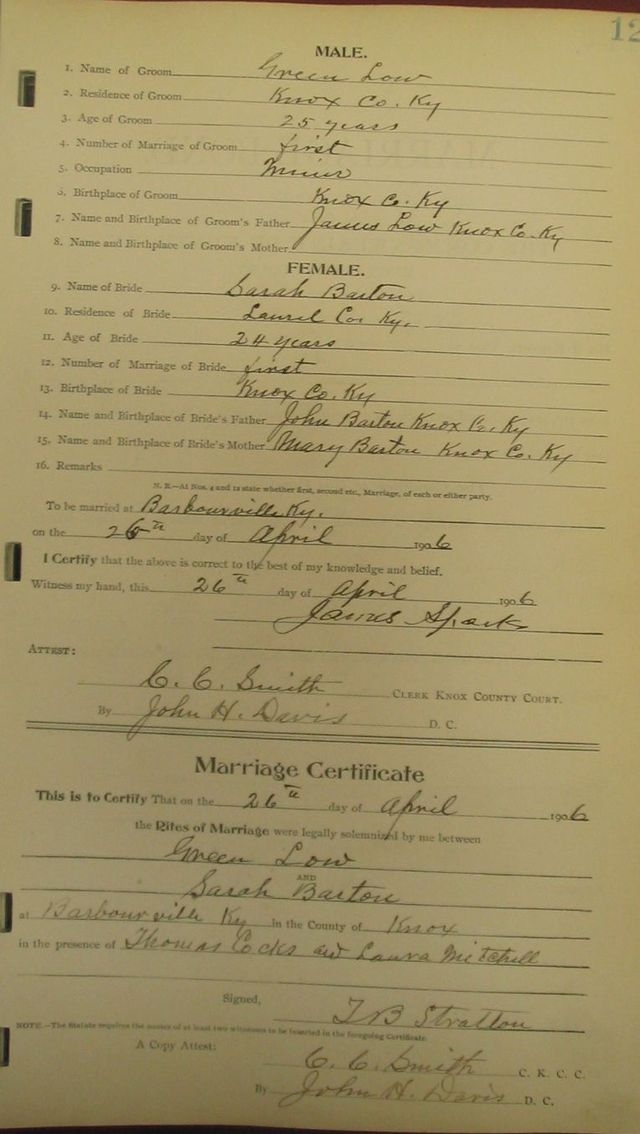 12
MALE.
1. Name of Groom Green Low
2. Residence of Groom Knox Co. Ky
3. Age of Groom 25 years
4. Number of Marriage of Groom first
5. Occupation Miner
6. Birthplace of Groom Knox Co. Ky
7. Name and Birthplace of Groom's Father James Low Knox Co. Ky
8. Name and Birthplace of Groom's Mother
FEMALE.
9. Name of Bride Sarah Barton
10. Residence of Bride Laurel Co. Ky.
11. Age of Bride 24 years
12. Number of Marriage of Bride first
13. Birthplace of Bride Knox Co. Ky
14. Name and Birthplace of Bride's Father John Barton Knox Co. Ky
15. Name and Birthplace of Bride's Mother Mary Barton Knox Co. Ky
16. Remarks
N. B.—At Nos. 4 and 12 state whether first, second etc., Marriage, of each or either party.
To be married at Barbourville Ky.
on the 26th day of April 1906
I Certify that the above is correct to the best of my knowledge and belief.
Witness my hand, this 26th day of April 1906
James
ATTEST:
C. C. Smith CLERK KNOX COUNTY COURT.
By John H. Davis D. C.
Marriage Certificate
This is to Certify That on the 26th day of April 1906
the Rites of Marriage were legally solemnized by me between
Green Low
AND
Sarah Barton
at Barbourville Ky in the County of Knox
in the presence of Thomas and Laura Mitchell
Signed, T B Stratton
NOTE.—The Statute requires the names of at least two witnesses to be inserted in the foregoing Certificate.
A Copy Attest:
C. C. Smith C. K. C. C.
By John H. Davis D. C.